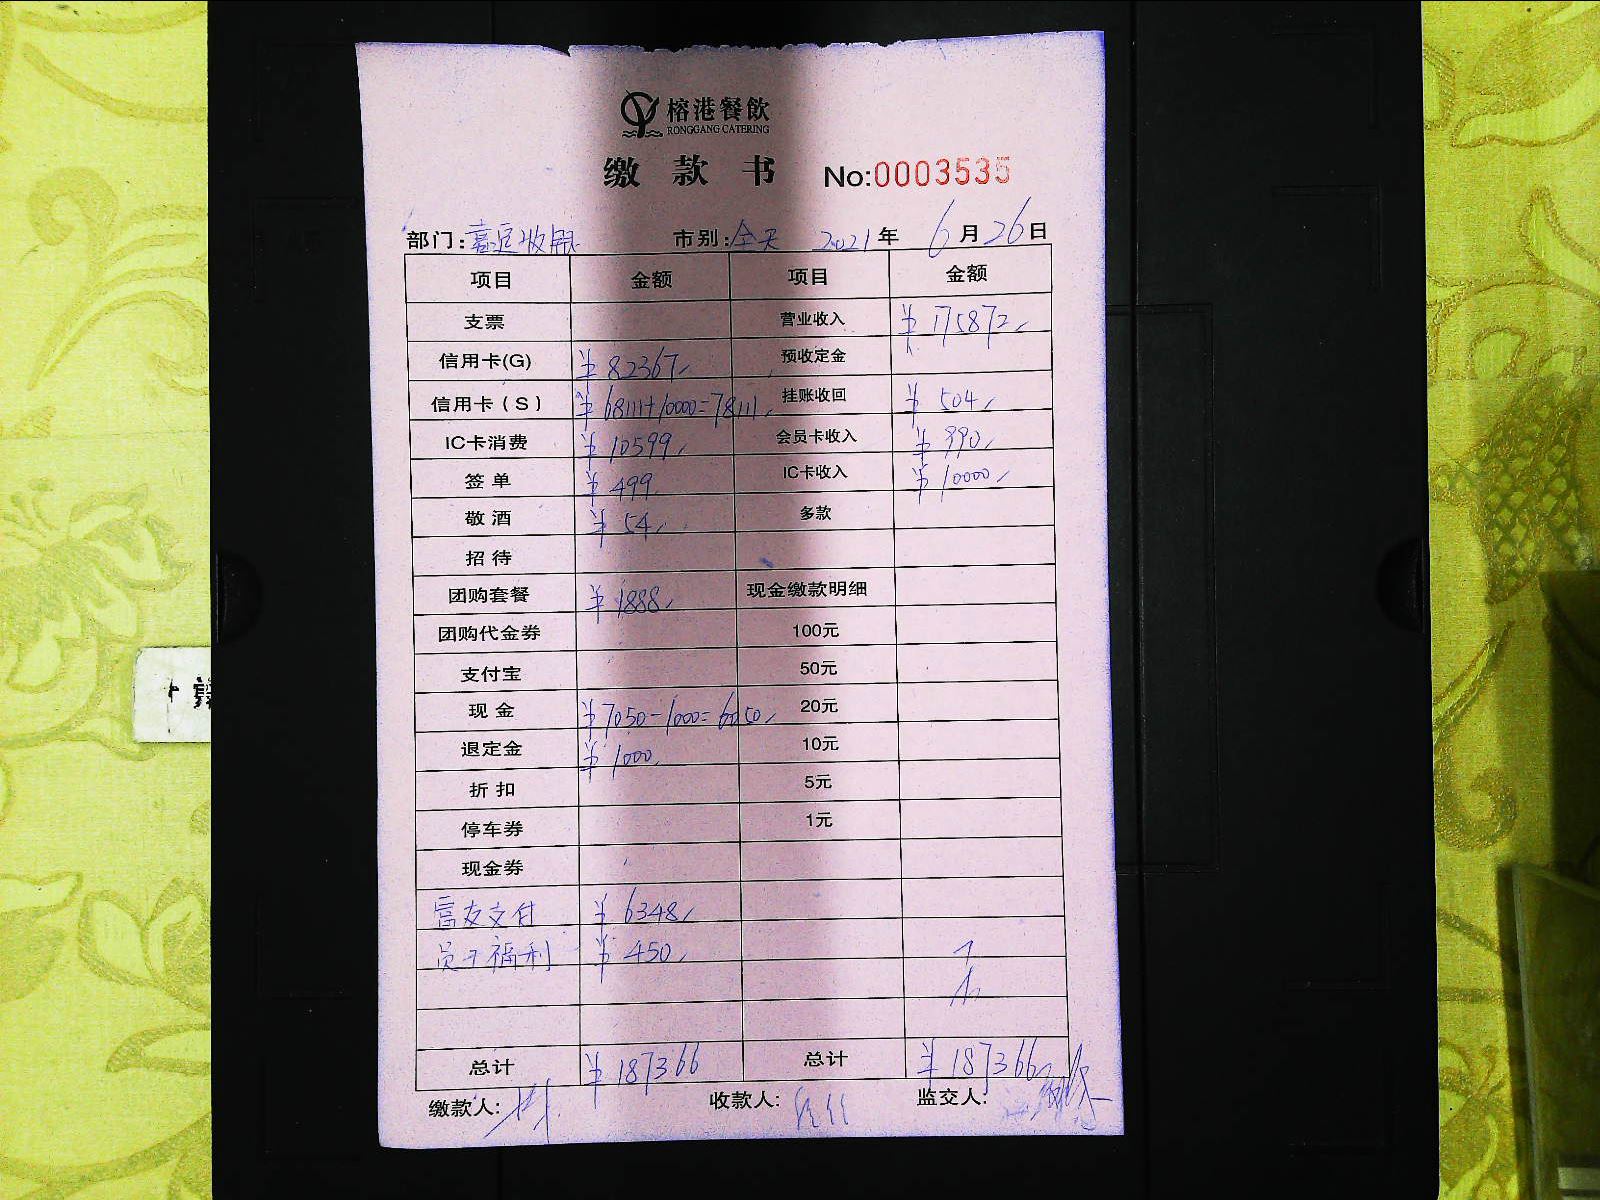 榕港餐飲
RONGGANG CATERING
缴款书 No:0003535
部门:嘉定收银 市别:全天 2021年6月26日
项目 金额 项目 金额
支票 营业收入 ¥175872
信用卡(G) ¥82367 预收定金
信用卡(S) ¥68111+10000=78111 挂账收回 ¥504
IC卡消费 ¥10599 会员卡收入 ¥990
签单 ¥499 IC卡收入 ¥10000
敬酒 ¥54 多款
招待
团购套餐 ¥1888 现金缴款明细
团购代金券 100元
支付宝 50元
现金 ¥7050-1000=6050 20元
退定金 ¥1000 10元
折扣 5元
停车券 1元
现金券
富友支付 ¥6348
员工福利 ¥450
总计 ¥187366 总计 ¥187366
缴款人: 收款人: 监交人: